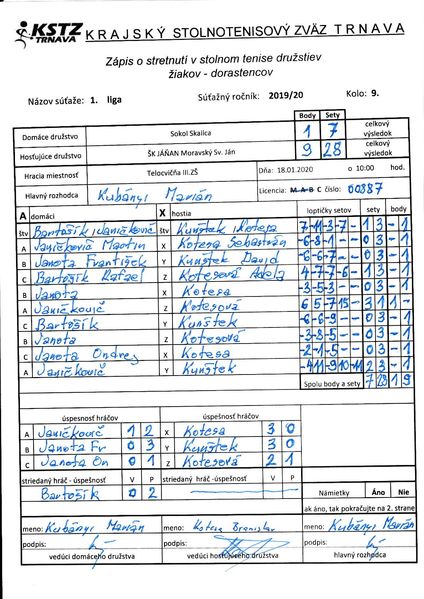 KSTZ TRNAVA KRAJSKÝ STOLNOTENISOVÝ ZVÄZ TRNAVA
Zápis o stretnutí v stolnom tenise družstiev
žiakov - dorastencov
Názov súťaže: 1. liga Súťažný ročník: 2019/20 Kolo: 9.
Body Sety
Domáce družstvo Sokol Skalica 1 7 celkový výsledok
Hosťujúce družstvo ŠK JÁŇAN Moravský Sv. Ján 9 28 celkový výsledok
Hracia miestnosť Telocvičňa III.ZŠ Dňa: 18.01.2020 o 10:00 hod.
Hlavný rozhodca Kubányi Marián Licencia: M A B C číslo: 00387
A domáci X hostia loptičky setov sety body
štv Bartošík, Janičkovič štv Kunštek, Kotesa 7-11-3-7- 1 3 -1
A Janičková Martin X Kotesa Sebastián -6-8-1 -0 3 -1
B Janota František Y Kunštek David -6-6-7- -0 3 -1
C Bartošík Rafael Z Kotesová Adela 4-7-7-6 -1 3 -1
B Janota X Kotesa -3-5-3 -0 3 -1
A Janičkovič Z Kotesová 6 5-7 15 - 3 1 1 -
C Bartošík Y Kunštek -6-6-9 -0 3 -1
B Janota Z Kotesová -3-8-5 -0 3 -1
C Janota Ondrej X Kotesa -2-1-5 -0 3 -1
A Janičkovič Y Kunštek -4 11-9 10-11 2 3 -1
Spolu body a sety 7 28 1 9
úspesnosť hráčov úspešnosť hráčov
A Janičkovič 1 2 X Kotesa 3 0
B Janota Fr 0 3 Y Kunštek 3 0
C Janota On 0 1 Z Kotesová 2 1
striedaný hráč -úspešnosť V P striedaný hráč - úspešnosť V P
Bartošík 0 2 Námietky Áno Nie
ak áno, tak pokračujte na 2. strane
meno: Kubányi Marián meno: Kotesa Branislav meno: Kubányi Marián
podpis: podpis: podpis:
vedúci domáceho družstva vedúci hosťujúceho družstva hlavný rozhodca